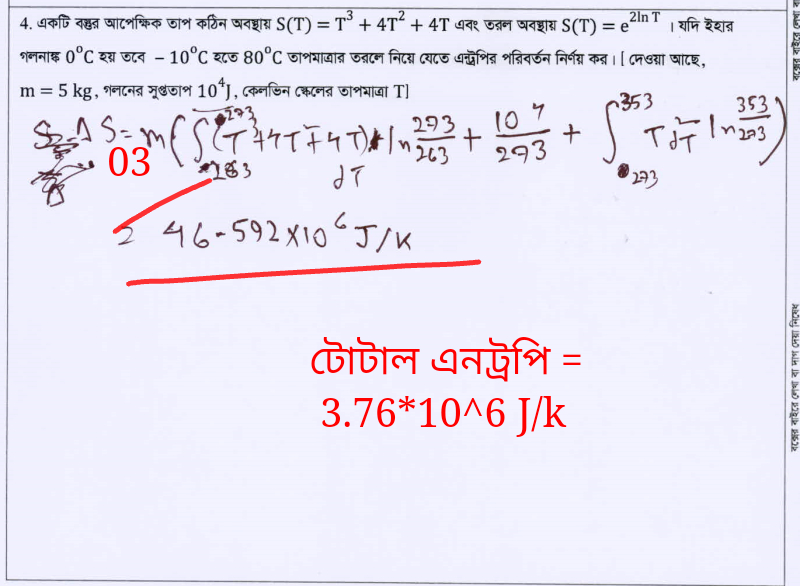 4. একটি বস্তুর আপেক্ষিক তাপ কঠিন অবস্থায় S(T) = T³ + 4T² + 4T এবং তরল অবস্থায় S(T) = e^(2ln T) । যদি ইহার
গলনাঙ্ক 0°C হয় তবে − 10°C হতে 80°C তাপমাত্রার তরলে নিয়ে যেতে এন্ট্রপির পরিবর্তন নির্ণয় কর। [ দেওয়া আছে,
m = 5 kg, গলনের সুপ্ততাপ 10⁴J, কেলভিন স্কেলের তাপমাত্রা T]
Δ S = m ( ∫ 263 273 ( T + 4T + 4T) dT ln 273/263 + 10⁴/273 + ∫ 273 353 T² dT ln 353/273 )
03
46.592×10⁶ J/K
টোটাল এনট্রপি =
3.76*10^6 J/k
বক্সের বাইরে লেখা বা দাগ দেয়া নিষেধ